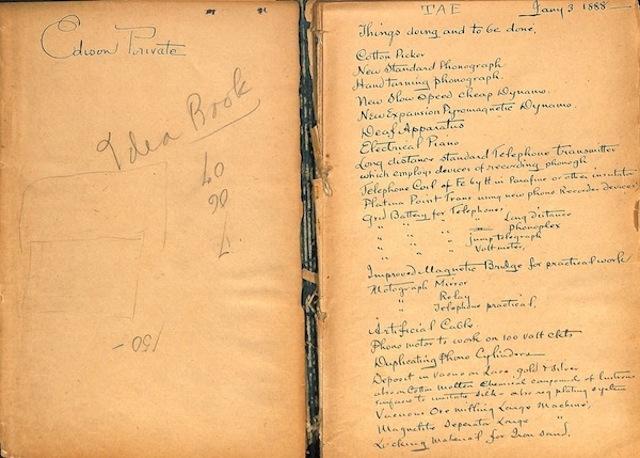 Edison Private
Idea Book
40
26
7
150 -
TAE Jany 3 1888
Things doing and to be done,
Cotton Picker
New Standard Phonograph
Hand turning phonograph.
New Slow speed cheap Dynamo.
New Expansion Pyromagnetic Dynamo.
Deaf Apparatus
Electrical Piano
Long distance standard Telephone Transmitter
which employs devices of recording phonogh
Telephone Coil of Fe by H in Parafine or other insulator
Platina Point Trans using new phono Recorder devices
Grid Battery for Telephones
" " " Long distance
" " " Phonoplex
" " " jump telegraph
" " " Voltmeter,
Improved Magnetic Bridge for practical work
Motograph Mirror
" Relay
" Telephone practical,
Artificial Cable,
Phono motor to work on 100 volt ckts
Duplicating Phono Cylinders
Deposit in vacuo on Lace, gold & silver
also on Cotton molten Chemical compound of lustrous
surface to imitate silk - also reg plating system
Vacuous Ore milling Large Machine,
Magnetite Seperator Large "
Locking material for Iron sand,